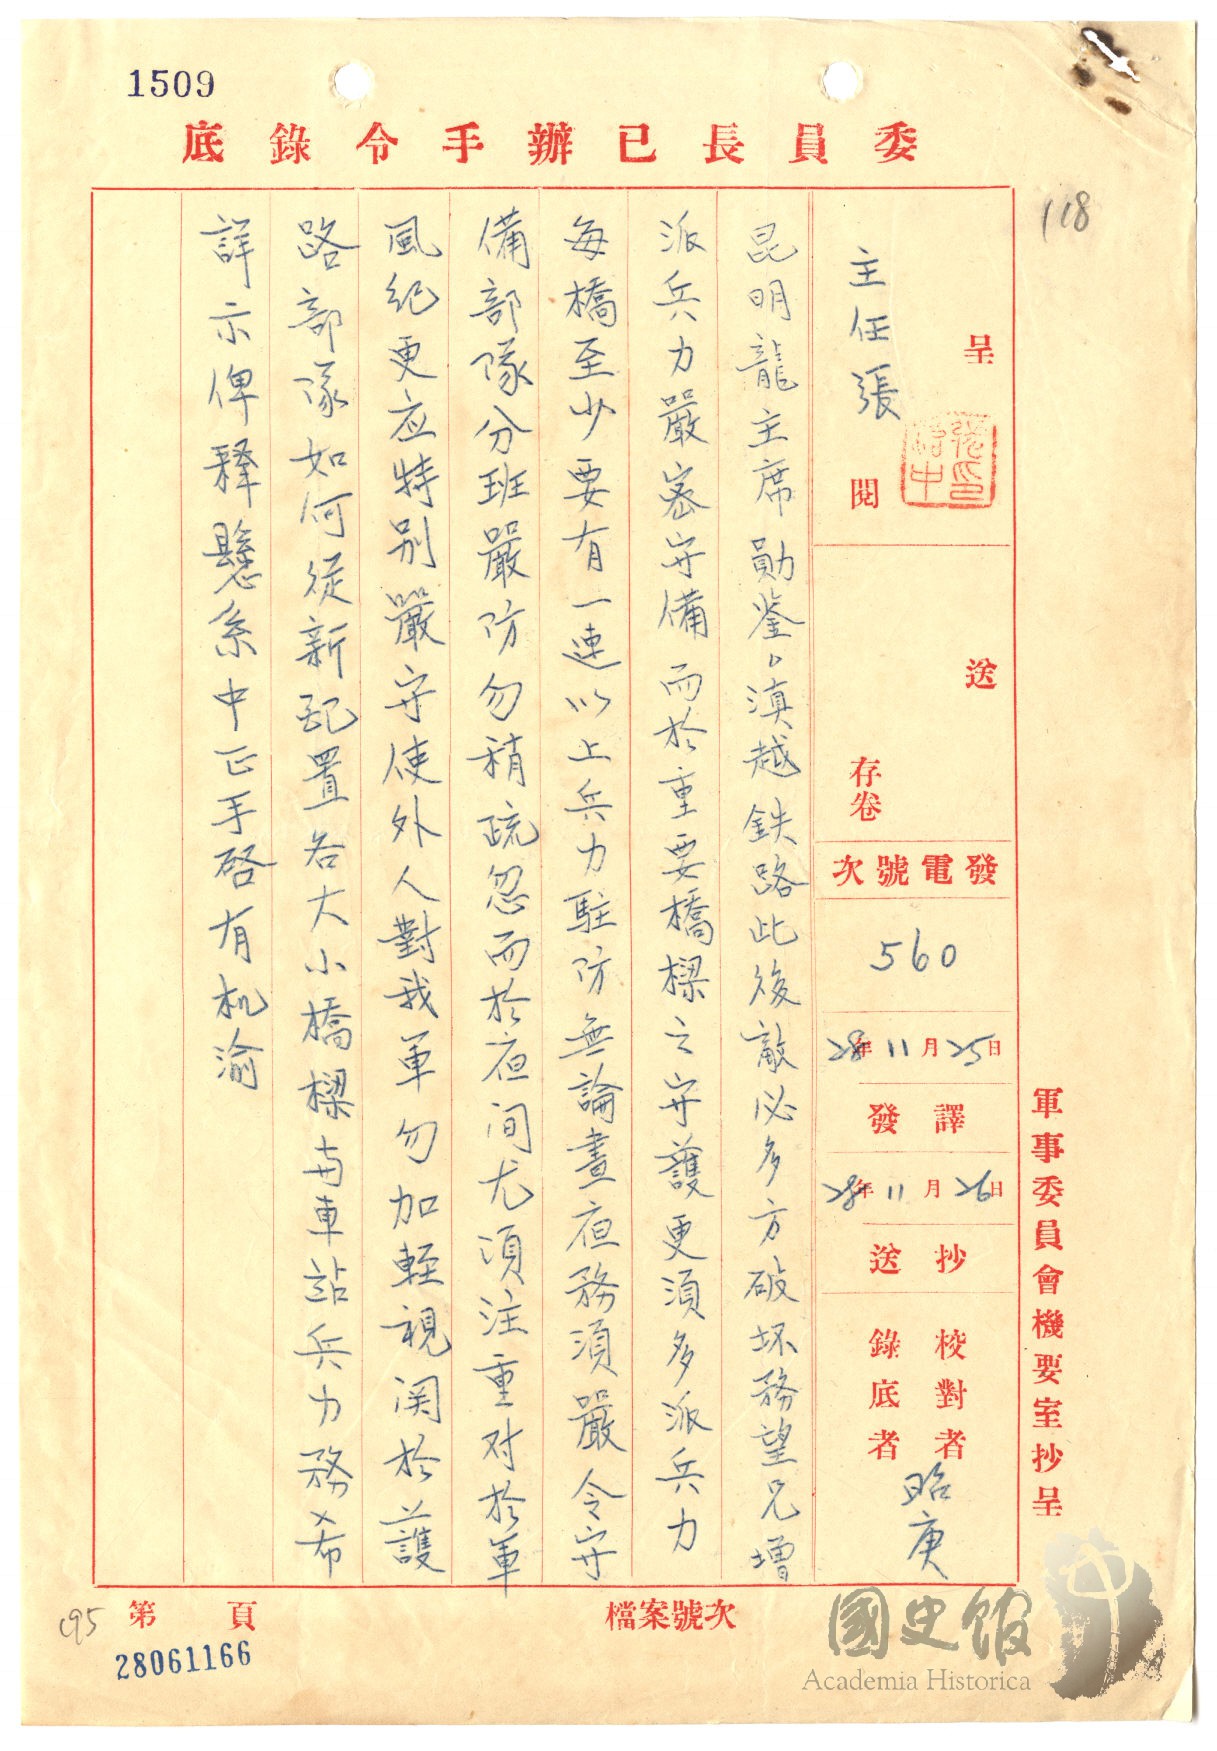 1509
委員長已辦手令錄底
118
呈
主任張
閱
張治中印
送
存卷
發電號次
560
28年11月25日
譯發
28年11月26日
抄送
校對者
錄底者
昭庚
軍事委員會機要室抄呈
昆明龍主席勛鉴、滇越鉄路此後敵必多方破坏務望兄增
派兵力嚴密守備而於重要橋樑之守護更須多派兵力
每橋至少要有一連以上兵力駐防無論晝夜務須嚴令守
備部隊分班嚴防勿稍疏忽而於夜间尤須注重对於軍
風紀更应特别嚴守使外人對我軍勿加輕視関於護
路部隊如何從新配置各大小橋樑与車站兵力務希
詳示俾釋懸系中正手啓有机渝
檔案號次
第 頁
195
28061166
國史館
Academia Historica